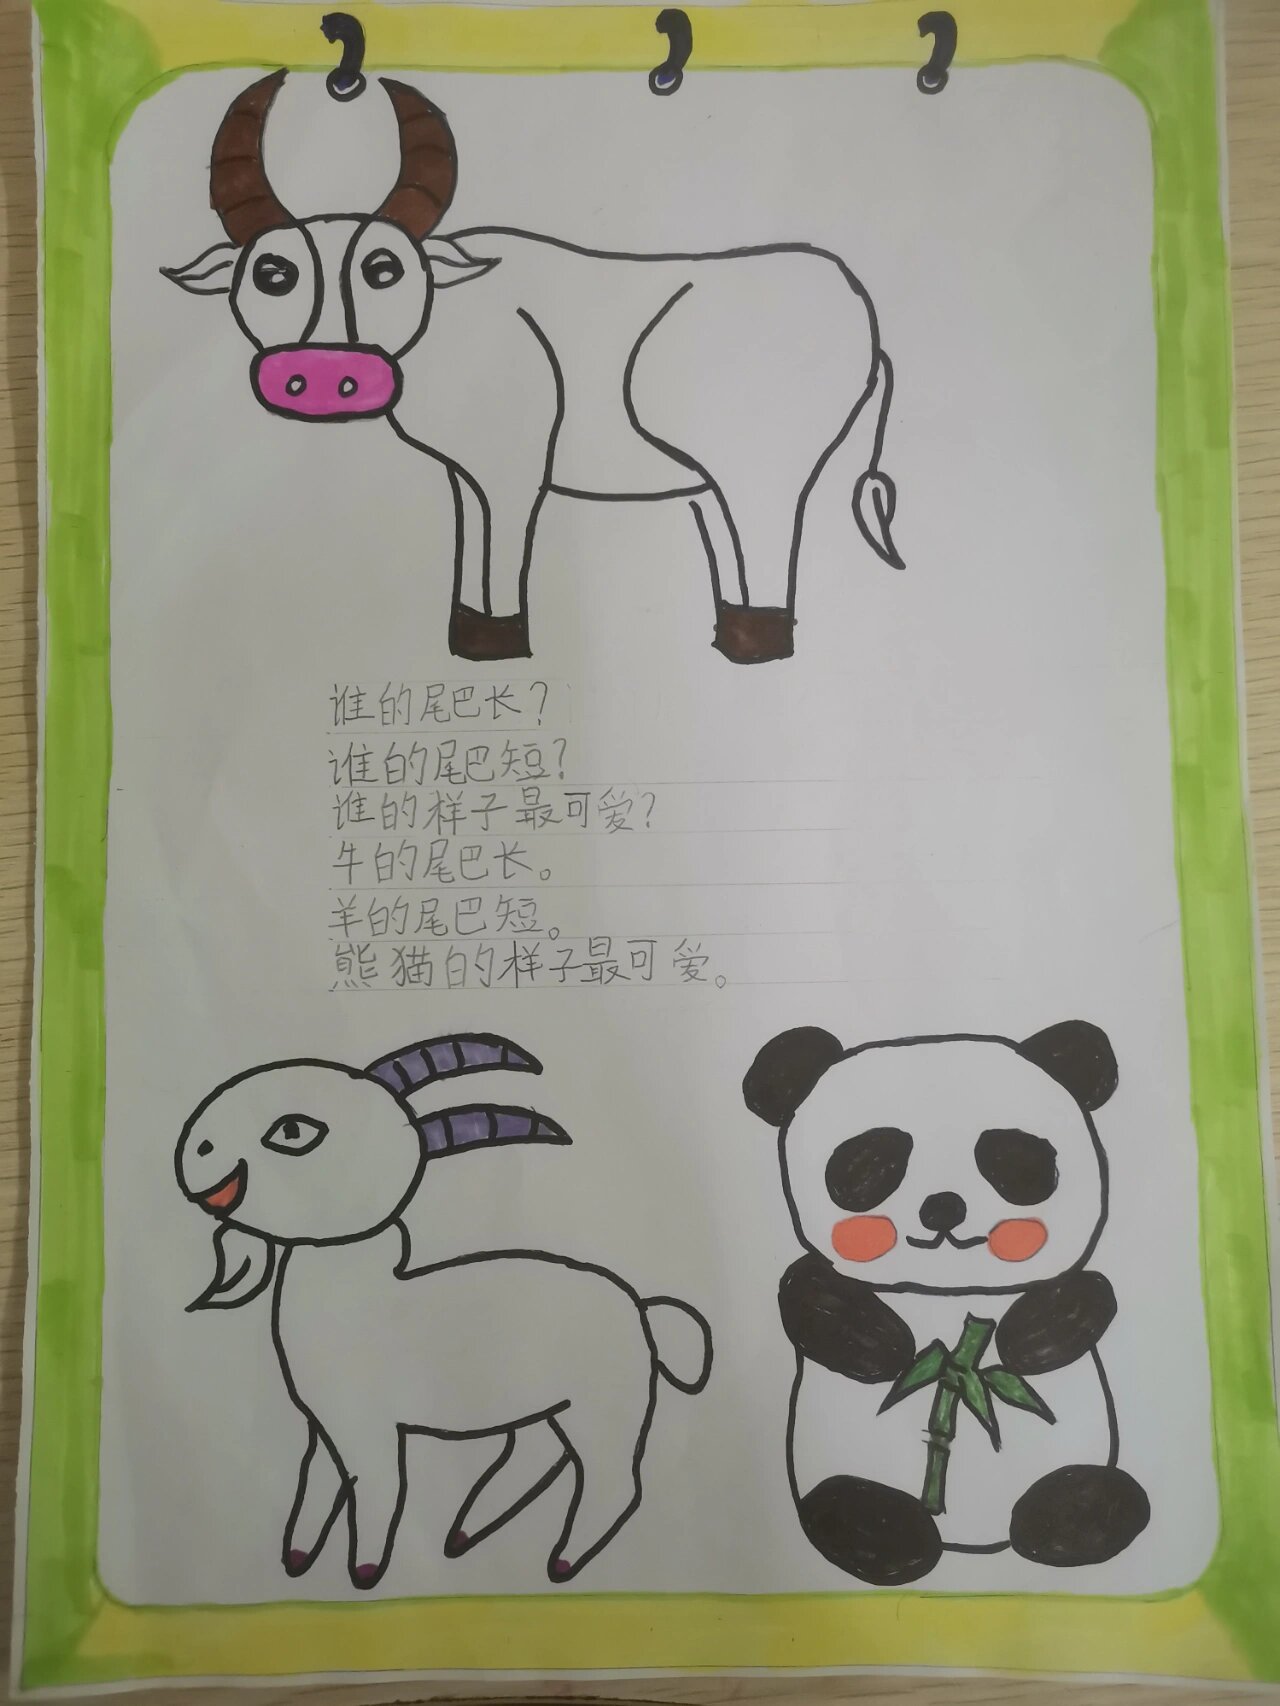 谁的尾巴长?
谁的尾巴短?
谁的样子最可爱?
牛的尾巴长。
羊的尾巴短。
熊猫的样子最可爱。